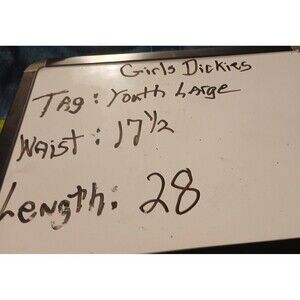 Girls Dickies
TAg: Youth Large
WAist: 17 1/2
Length: 28